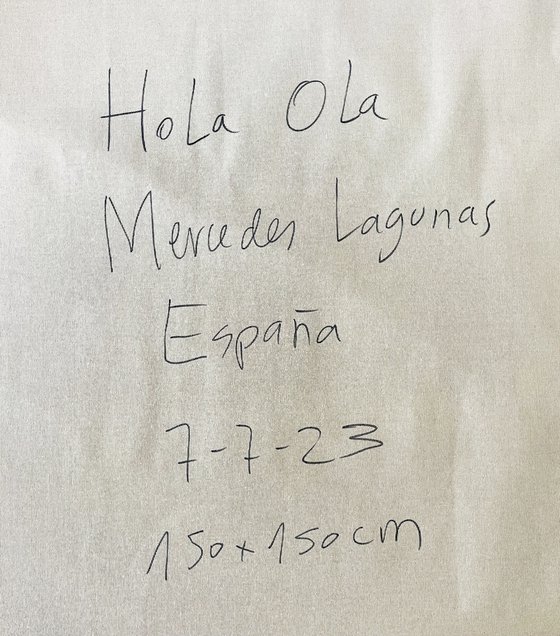 Hola Ola
Mercedes Lagunas
España
7-7-23
150x150cm